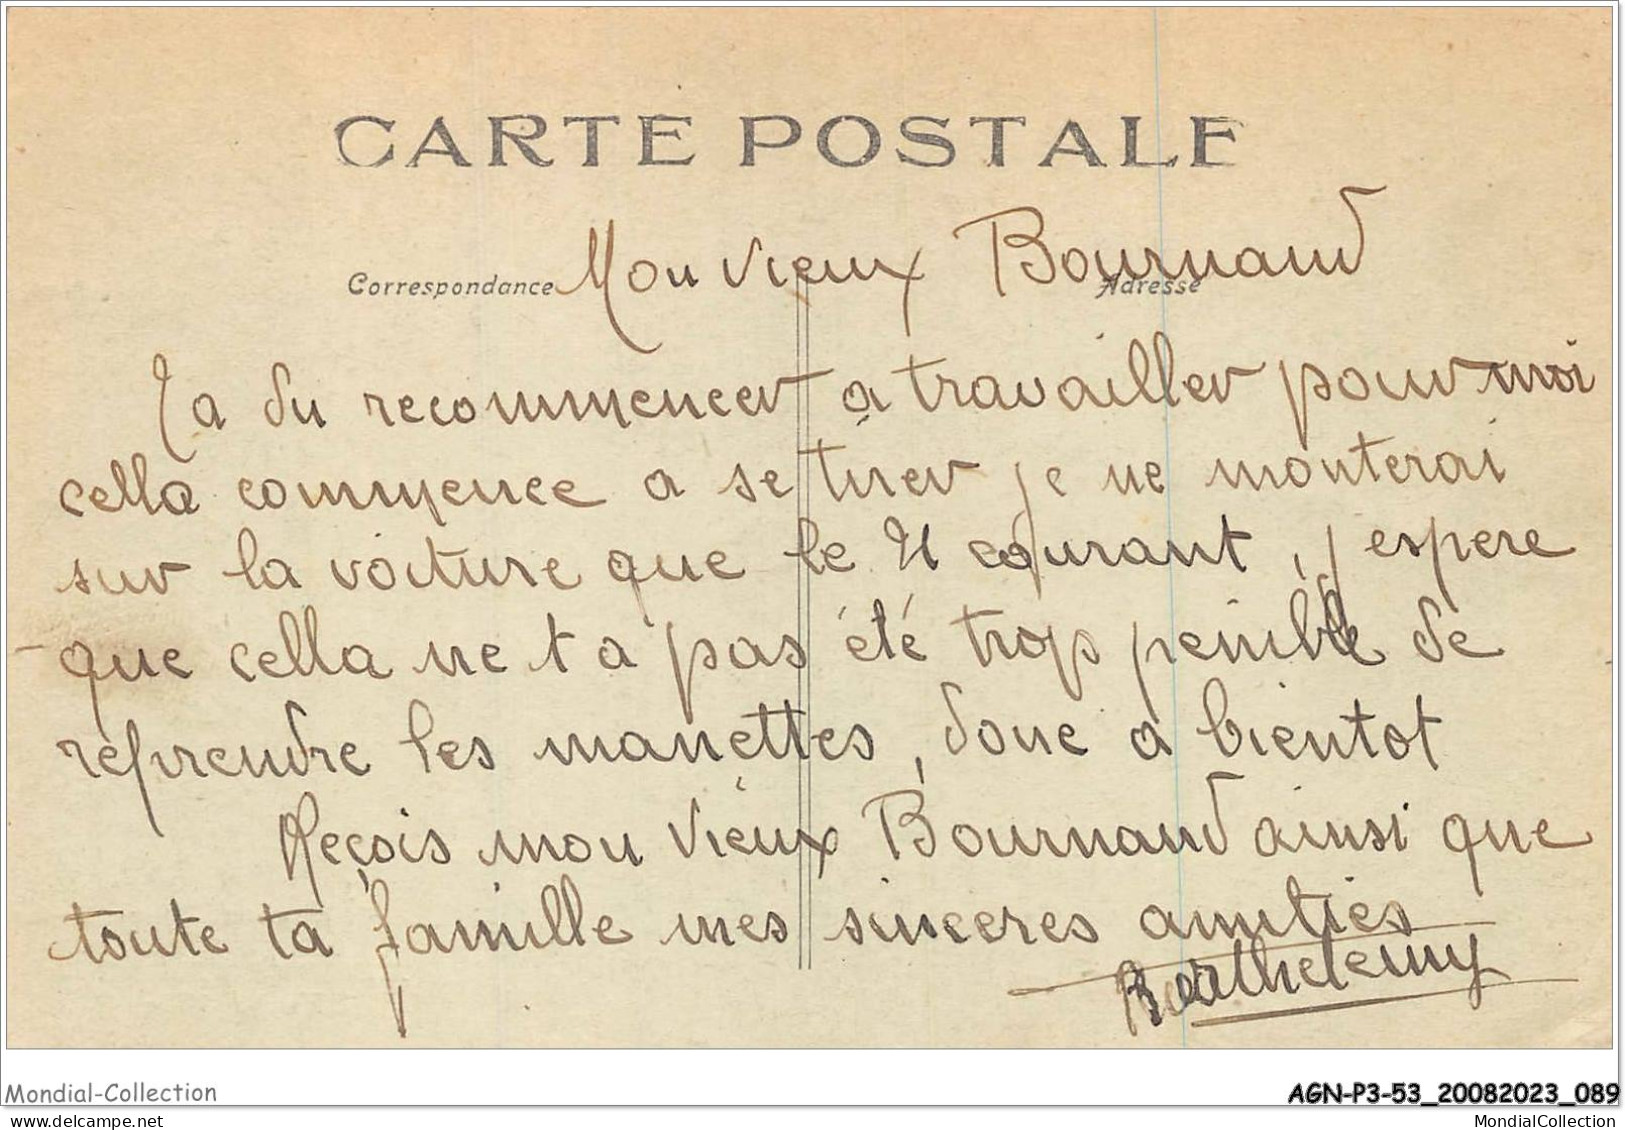 CARTE POSTALE
Correspondance
Adresse
Mon vieux Bournaud
Ta du recommencer a travailler pour moi
cella commence a se tirer je ne monterai
sur la voiture que le 21 courant, j espere
que cella ne t a pas été trop penible de
reprendre les manettes, donc a bientot
Reçois mon vieux Bournaud ainsi que
toute ta famille mes sinceres amities
Barthelemy
Mondial-Collection
AGN-P3-53_20082023_089
mastercartes.com
MondialCollection